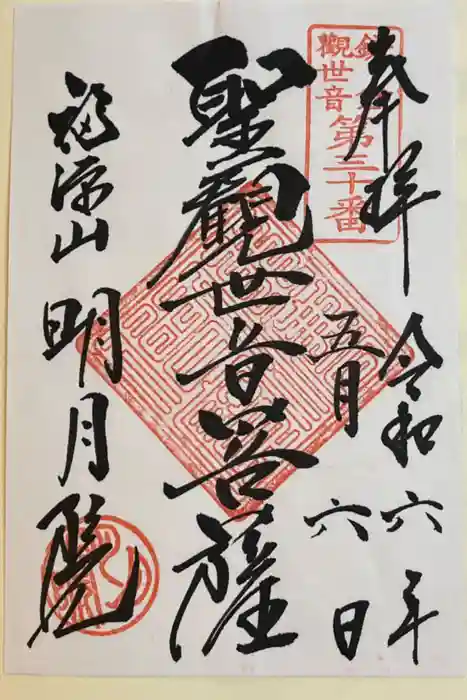 奉拝
令和六年
五月六日
鎌倉
観世音
第三十番
聖觀世音菩薩
福源山
明月院